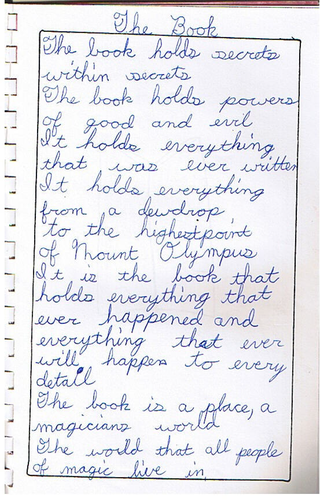 The Book
The book holds secrets
within secrets
The book holds powers
of good and evil
It holds everything
that was ever written
It holds everything
from a dewdrop
to the highest point
of Mount Olympus
It is the book that
holds everything that
ever happened and
everything that ever
will happen to every
detail
The book is a place, a
magicians world
The world that all people
of magic live in,